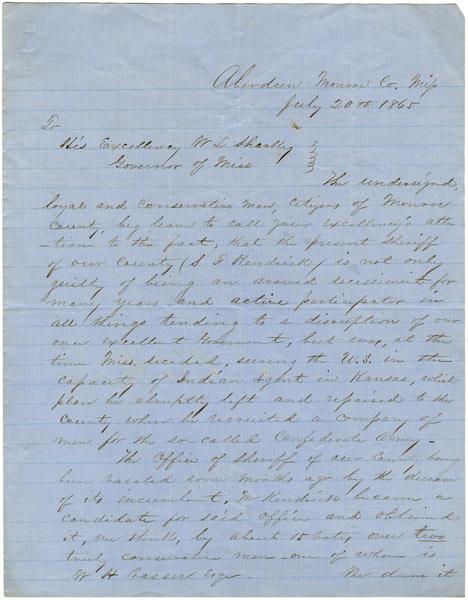 Aberdeen Monroe Co. Miss
July 20th 1865
To
His Excellency W L Sharkey
Governor of Miss
The undersigned,
loyal and conservative men, citizens of Monroe
County, beg leave to call your Excellency's atten
-tion to the fact, that the present Sheriff
of our County (S. F. Kendrick) is not only
guilty of being an avowed secessionist for
many years and active participator in
all things tending to a disruption of our
once excellent Government, but was, at the
time Miss. seceded, serving the U.S. in the
capacity of Indian Agent in Kansas, which
place he abruptly left and repaired to this
County when he recruited a company of
men for the so-called Confederate Army -
The Office of Sheriff of our County having
been vacated some months ago by the decease
of its incumbent, Mr Kendrick became a
candidate for said office and obtained
it, we think, by about 15 votes over two
truly conservative men - one of whom is
W H Esqr We deem it